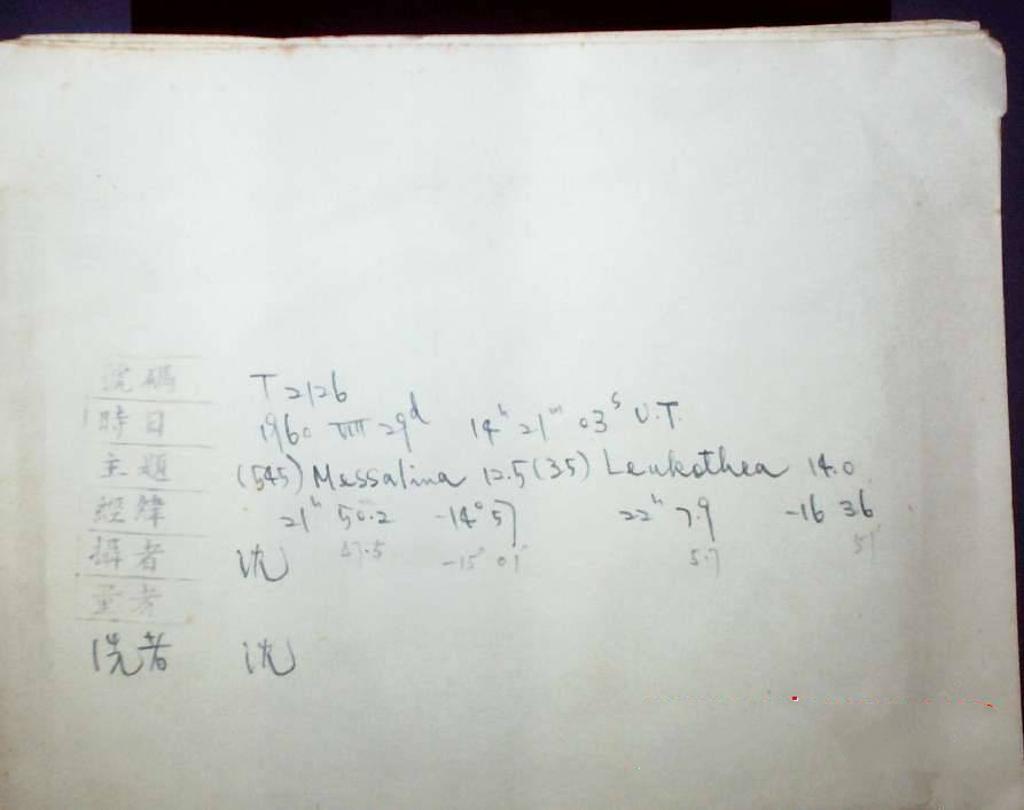 號碼 T 2126
時日 1960 VIII 29d 14h 21m 03s U.T.
主題 (545) Messalina 12.5 (35) Leukothea 14.0
經緯 21h 50.2 -14°57 22h 7.9 -16 36
47.5 -15° 01' 5.7 51'
攝者 沈
量者
洗者 沈